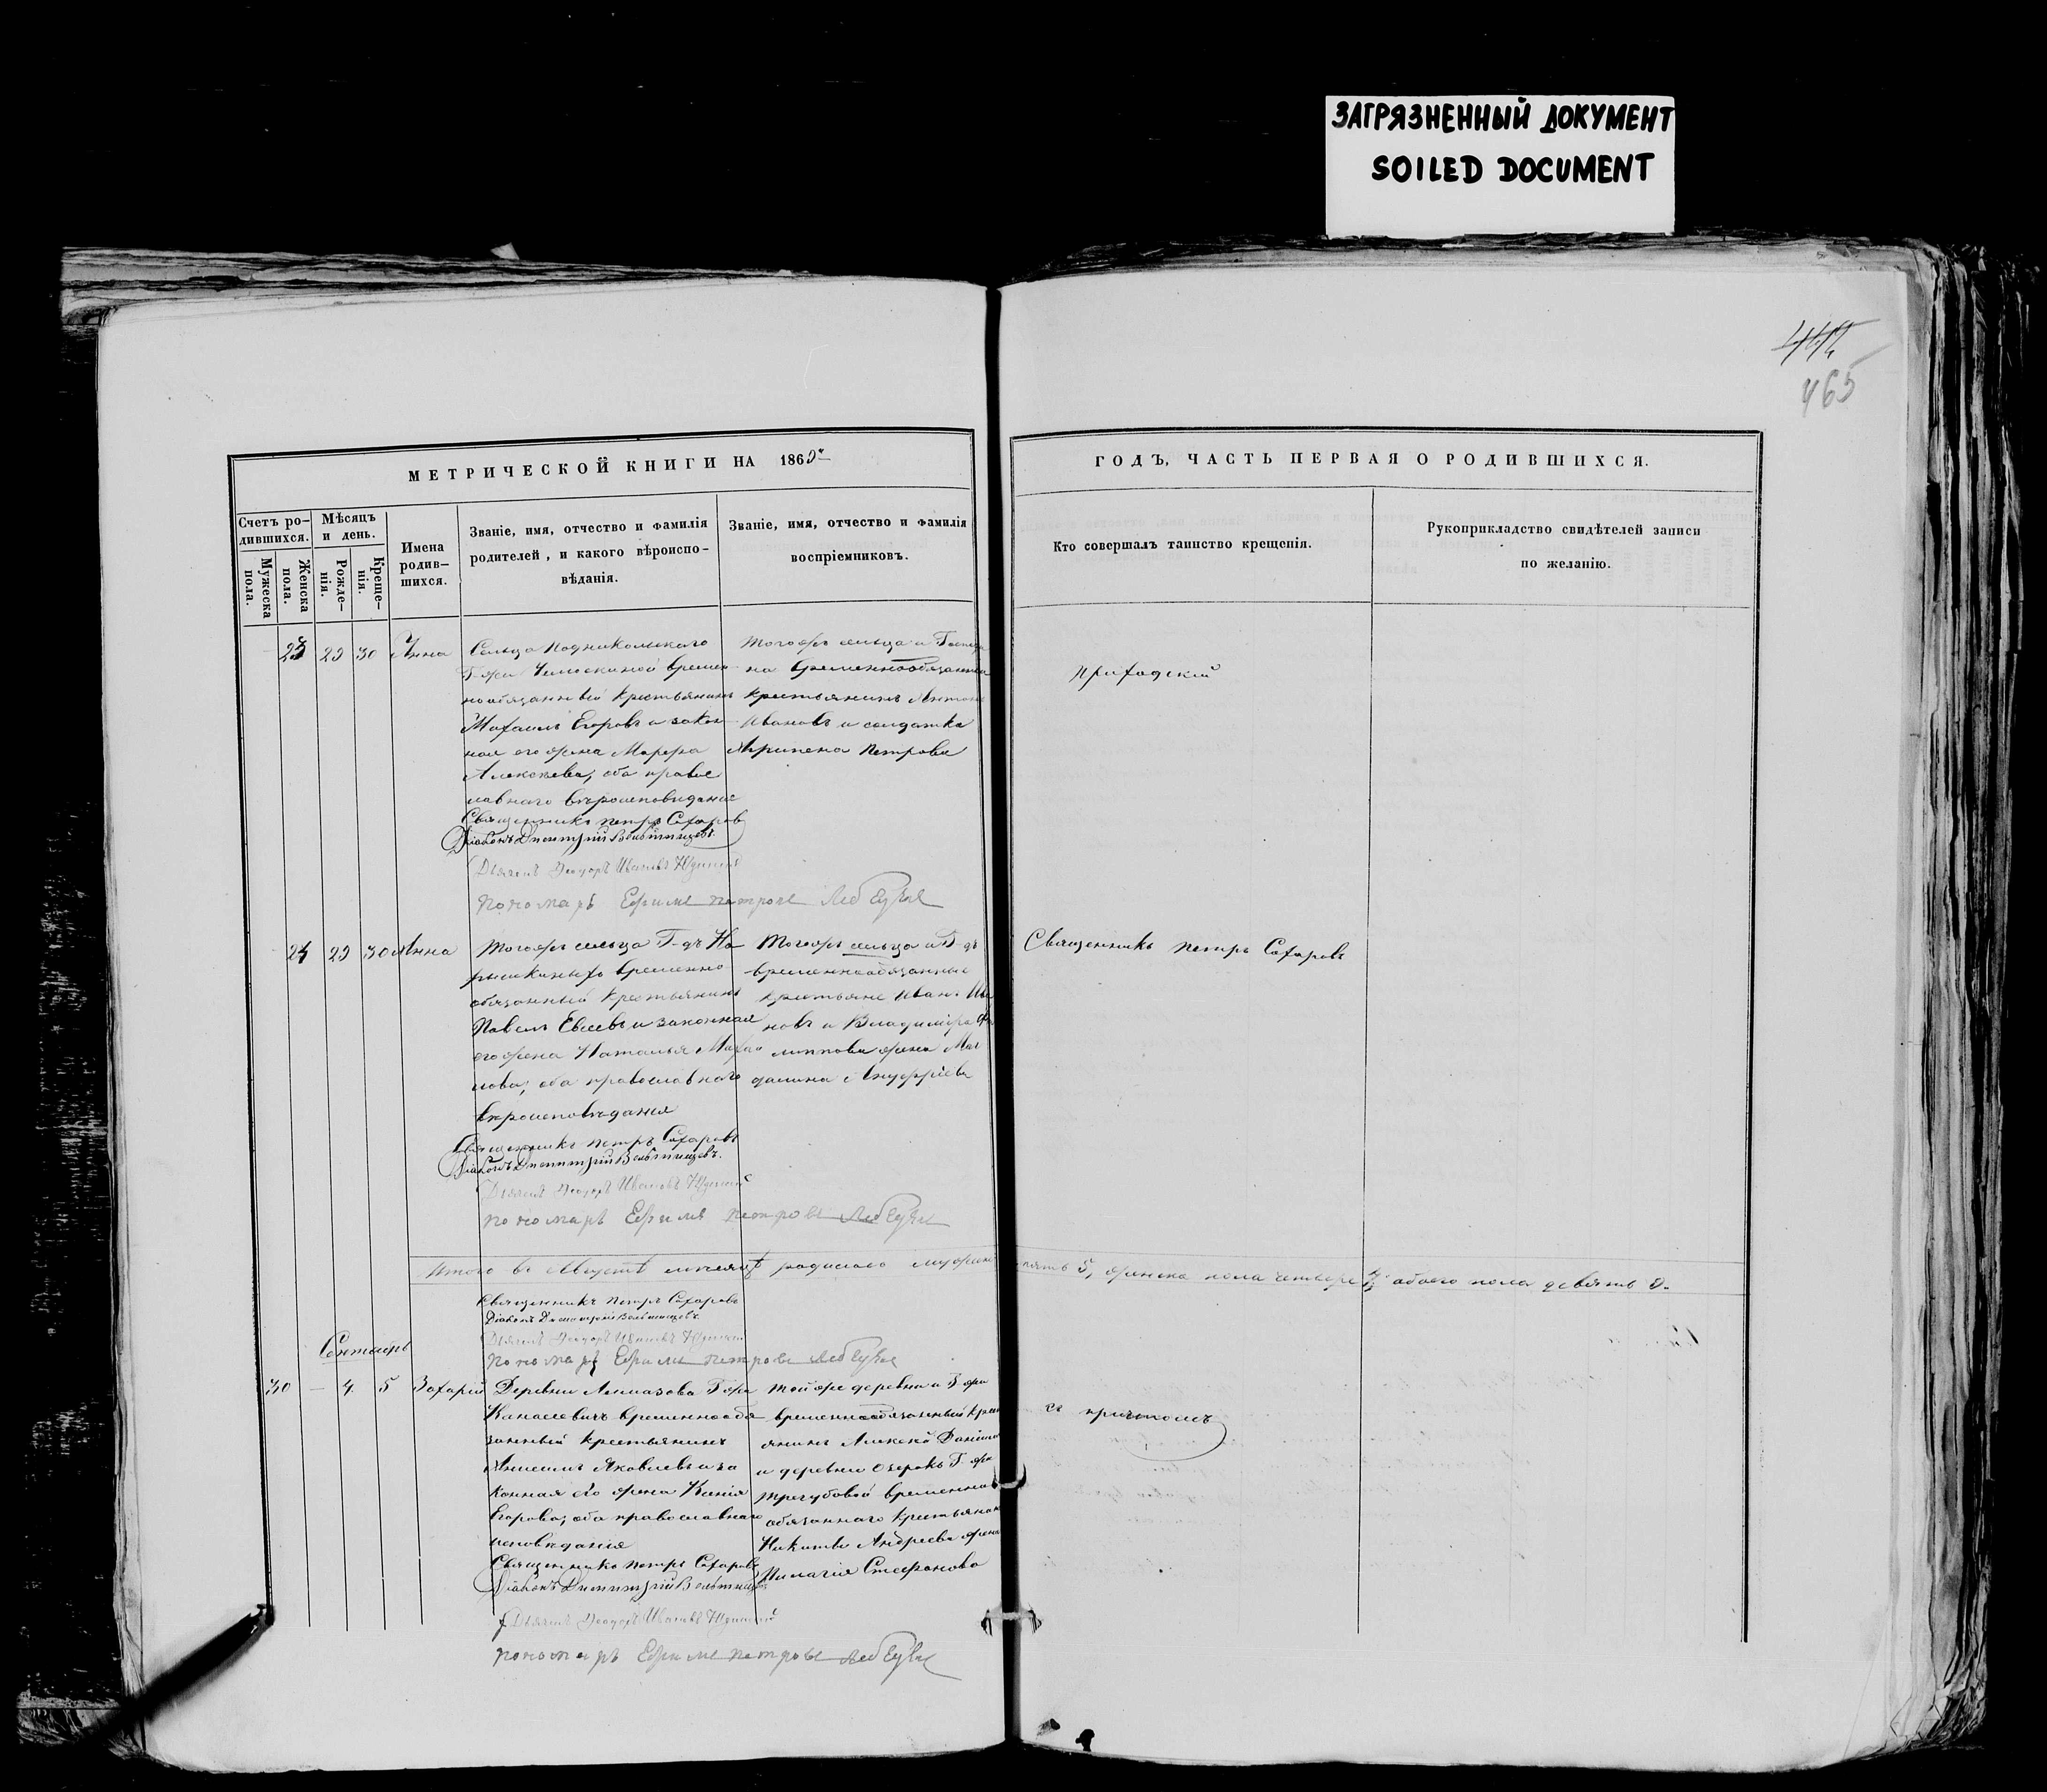 ЗАГРЯЗНЕННЫЙ ДОКУМЕНТ
SOILED DOCUMENT
465
МЕТРИЧЕСКОЙ КНИГИ НА 186
ГОДЪ, ЧАСТЬ ПЕРВАЯ О РОДИВШИХСЯ.
Счетъ ро-
дившихся.
Мужеска
пола.
Женска
пола.
Мѣсяцъ
и день.
Рожде-
нія.
Креще-
нія.
Имена
родив-
шихся.
Званіе, имя, отчество и фамилія
родителей, и какого вѣроиспо-
вѣданія.
Званіе, имя, отчество и фамилія
воспріемниковъ.
Кто совершалъ таинство крещенія.
Рукоприкладство свидѣтелей записи
по желанію.
23 29 30 Анна
Сельца Подникольскаго
Г-жи времен
нообязанный крестьянинъ
Михаилъ Егоровъ и закон
ная его жена Марфа
Алексѣева, оба право
славнаго вѣроисповѣданія
Священникъ Петръ Сахаровъ
Діаконъ Димитрій
Дьячекъ Ѳеодоръ Ивановъ
Пономарь Ефимъ Петровъ
Тогожъ сельца и
временнообязанный
крестьянинъ Антонъ
Ивановъ и солдатка
Агрипена Петрова
приходскій
24 29 30 Анна
Тогожъ сельца Г-дъ На
рышкиныхъ временно
обязанный крестьянинъ
Павелъ Евсеевъ и законная
его жена Наталья Михаи
лова, оба православнаго
вѣроисповѣданія
Священникъ Петръ Сахаровъ
Діаконъ Димитрій
Дьячекъ Ѳеодоръ Ивановъ
Пономарь Ефимъ Петровъ
Тогожъ сельца и Г-дъ
временнообязанные
крестьяне Иванъ Ива
новъ и Владиміра Фи
липпова жена Маг
далина
Священникъ Петръ Сахаровъ
Итого въ Августѣ мѣсяцѣ родилось мужеска пять 5, женска пола четыре обоего пола девять 9.
Священникъ Петръ Сахаровъ
Діаконъ Димитрій
Дьячекъ Ѳеодоръ Ивановъ
Пономарь Ефимъ Петровъ
Сентябрь
30 — 4 5 Захарій
Деревни Г-жи
временнообя
занный крестьянинъ
Анисимъ Яковлевъ и за
конная его жена Ксенія
Егорова, оба православнаго
исповѣданія
Священникъ Петръ Сахаровъ
Діаконъ Димитрій
Дьячекъ Ѳеодоръ Ивановъ
Пономарь Ефимъ Петровъ
Тойже деревни и Г-жи
временнообязанный крест
янинъ Алексѣй
и деревни Озерокъ Г-жи
Трегубовой временно
обязаннаго крестьянина
Никиты Андреева жена
Пелагія Стефанова
съ причтомъ